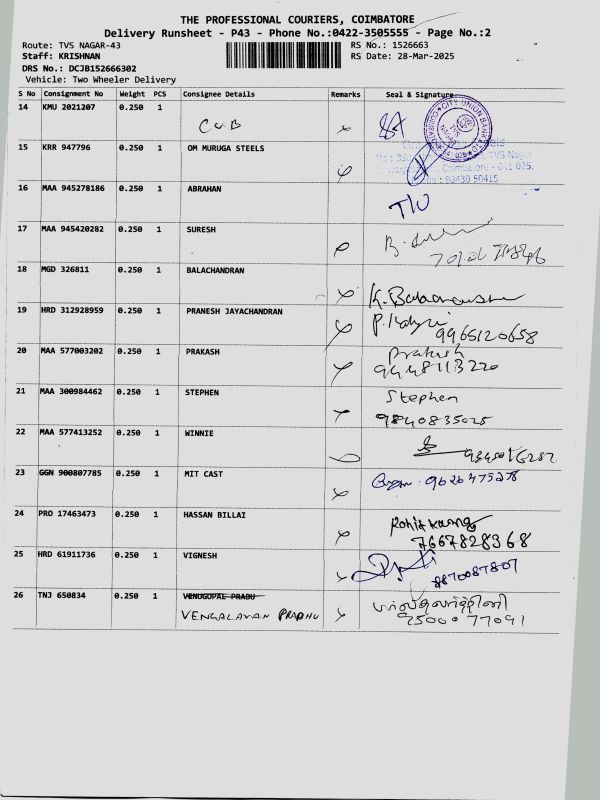 THE PROFESSIONAL COURIERS, COIMBATORE
Delivery Runsheet - P43 - Phone No.:0422-3505555 - Page No.:2
Route: TVS NAGAR-43
RS No.: 1526663
Staff: KRISHNAN
RS Date: 28-Mar-2025
DRS No.: DCJB152666302
Vehicle: Two Wheeler Delivery
S No Consignment No Weight PCS Consignee Details Remarks Seal & Signature
14 KMU 2021207 0.250 1
CUB
CITY UNION BANK
15 KRR 947796 0.250 1 OM MURUGA STEELS
TVS Nagar
Coimbatore - 641 025.
93430 50415
16 MAA 945278186 0.250 1 ABRAHAN
17 MAA 945420282 0.250 1 SURESH
18 MGD 326811 0.250 1 BALACHANDRAN
K. Balachandran
19 HRD 312928959 0.250 1 PRANESH JAYACHANDRAN
9965120658
20 MAA 577003202 0.250 1 PRAKASH
Prakash
9448113220
21 MAA 300984462 0.250 1 STEPHEN
Stephen
9840835025
22 MAA 577413252 0.250 1 WINNIE
23 GGN 900807785 0.250 1 MIT CAST
9626475278
24 PRO 17463473 0.250 1 HASSAN BILLAI
7667828368
25 HRD 61911736 0.250 1 VIGNESH
9870087807
26 TNJ 650834 0.250 1 VENUGOPAL PRABU
VENGALAVAN PRABHU
95000 77091